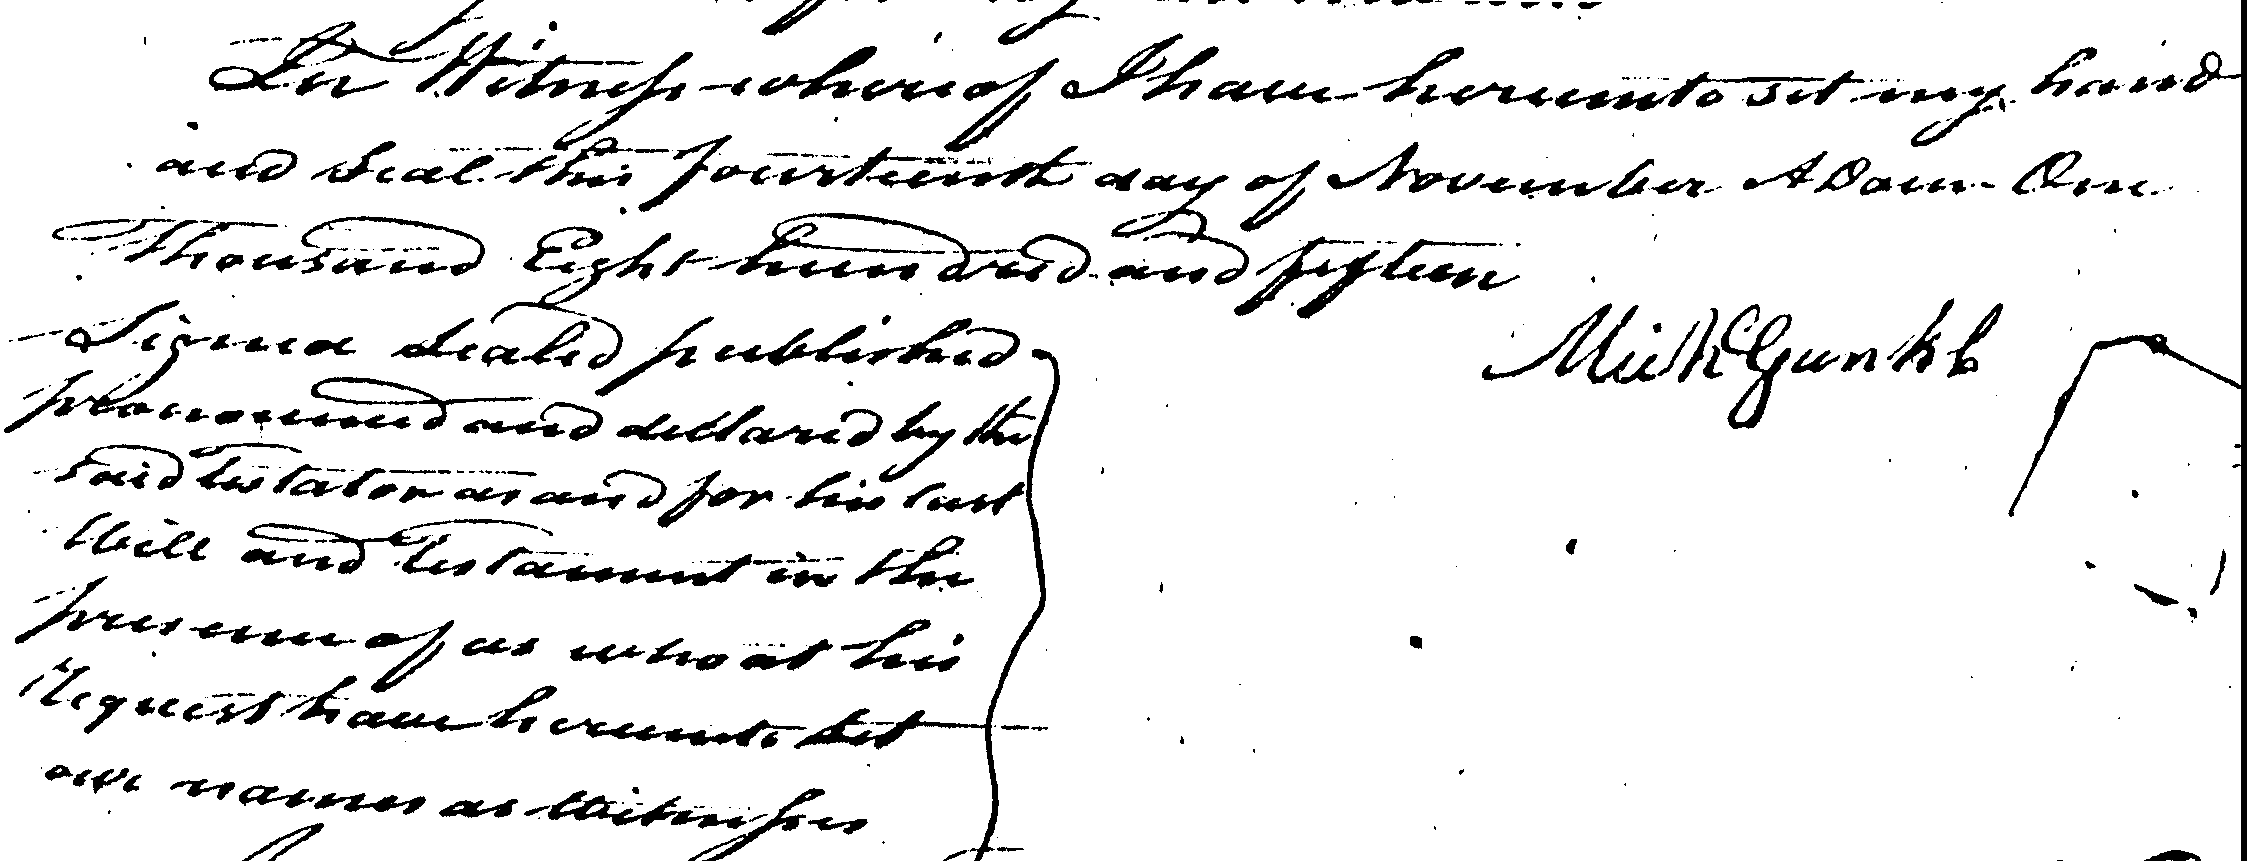 In Witness whereof I have hereunto set my hand
and Seal this fourteenth day of November A Dom One
Thousand Eight hundred and fifteen
Signed Sealed published
pronounced and declared by the
said testator as and for his last
Will and Testament in the
presence of us who at his
Request have hereunto set
our names as Witnesses
Mich Gunkle